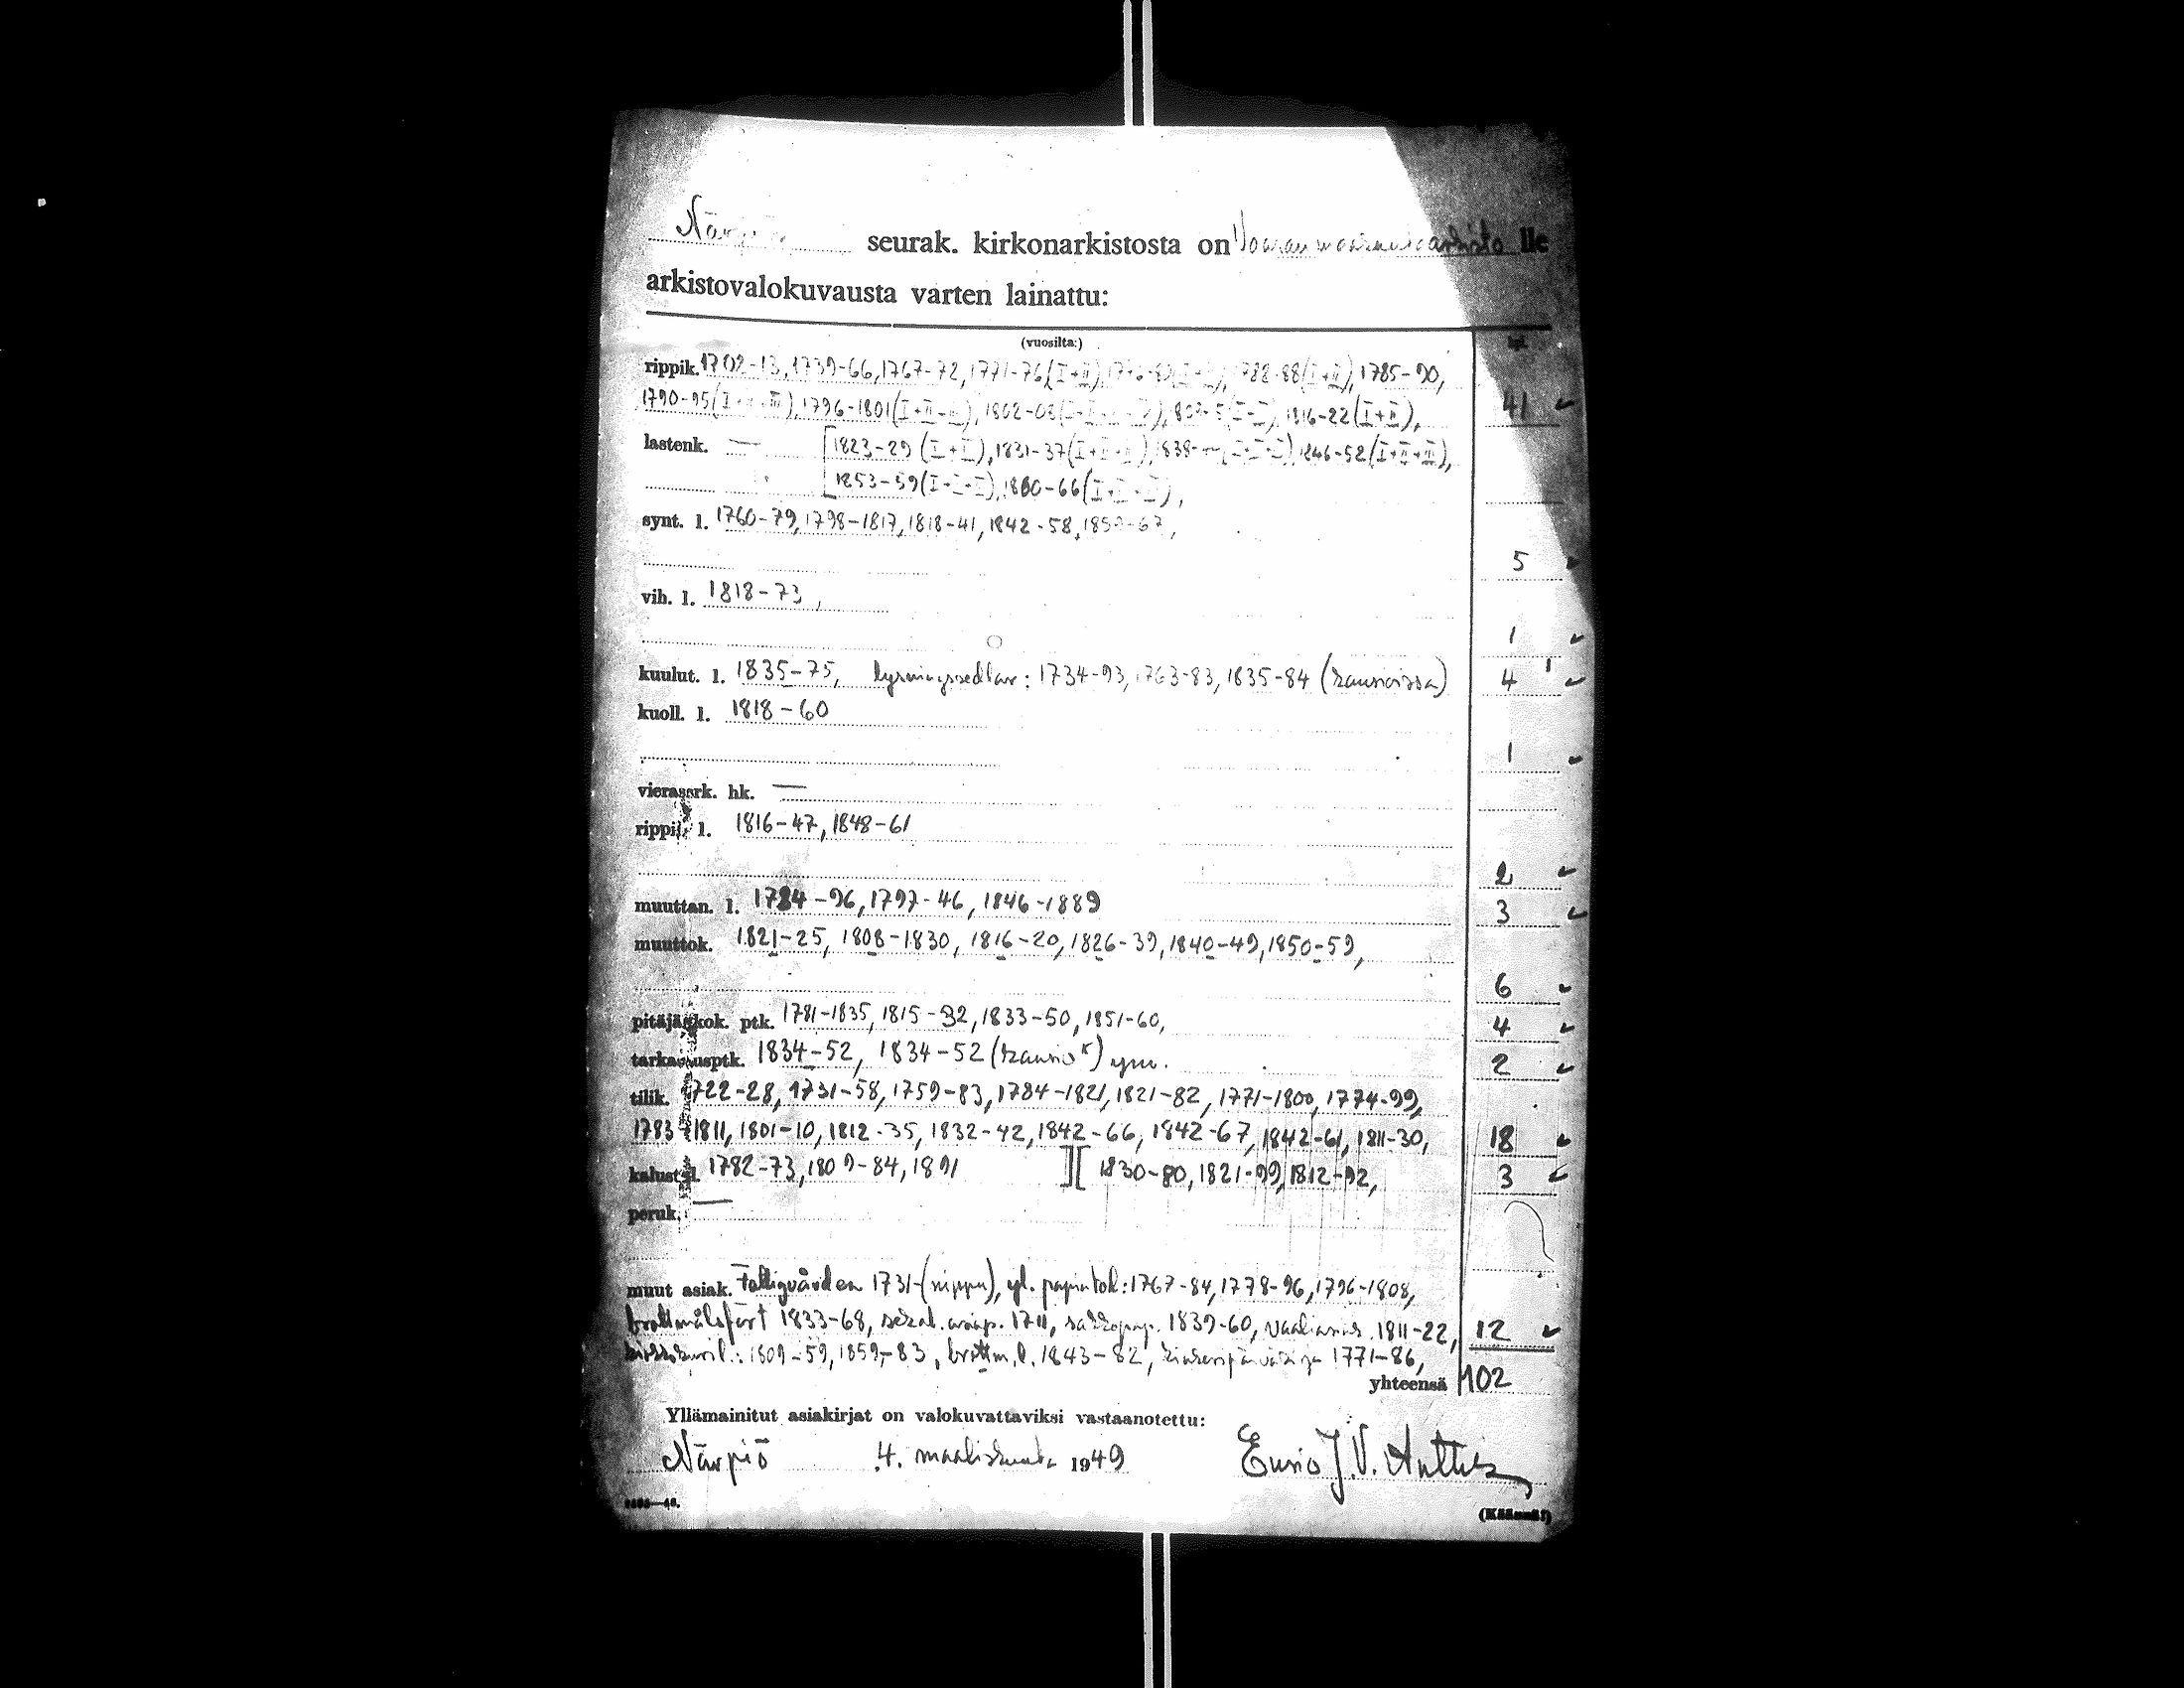 Närpiö seurak. kirkonarkistosta on Vaasan maakunta-arkisto lle
arkistovalokuvausta varten lainattu:
(vuosilta:) kpl.
rippik. 1702-13, 1739-66, 1767-72, 1771-76 (I+II), 1785-90,
1790-95 (I+II+III), 1796-1801 (I+II+III), 1802-08 1816-22 (I+II), 41
lastenk. — [1823-29 (I+II), 1831-37 (I+II+III), 1838- 1846-52 (I+II+III),
[1853-59 (I+II+III), 1860-66 (I+II+III),
synt. l. 1760-79, 1798-1817, 1818-41, 1842-58, 1859-67,
5
vih. l. 1818-73,
1
kuulut. l. 1835-75, lysningssedlar: 1734-93, 1763-83, 1835-84 (kansioissa) 4
kuoll. l. 1818-60
1
vierassrk. hk. —
rippil. l. 1816-47, 1848-61
2
muuttan. l. 1784-96, 1797-46, 1846-1889 3
muuttok. 1821-25, 1808-1830, 1816-20, 1826-39, 1840-49, 1850-59,
6
pitäjänkok. ptk. 1781-1835, 1815-32, 1833-50, 1851-60, 4
tarkastusptk. 1834-52, 1834-52 (kansio) ym. 2
tilik. 1722-28, 1731-58, 1759-83, 1784-1821, 1821-82, 1771-1800, 1774-99,
1783-1811, 1801-10, 1812-35, 1832-42, 1842-66, 1842-67, 1842-61, 1811-30, 18
kalust. l. 1782-73, 1809-84, 1891 ][ 1830-80, 1821-99, 1812-92, 3
peruk. —
muut asiak. Fattigvården 1731-(nippu), yl. 1767-84, 1778-96, 1796-1808,
brottmålsfört 1833-68, sekal. 1711, 1839-60, 1811-22, 12
1809-59, 1859-83, brottm. l. 1843-82, 1771-86,
yhteensä 102
Yllämainitut asiakirjat on valokuvattaviksi vastaanotettu:
Närpiö 4. maaliskuuta 1949 Ensio J.V.
(Käännä!)